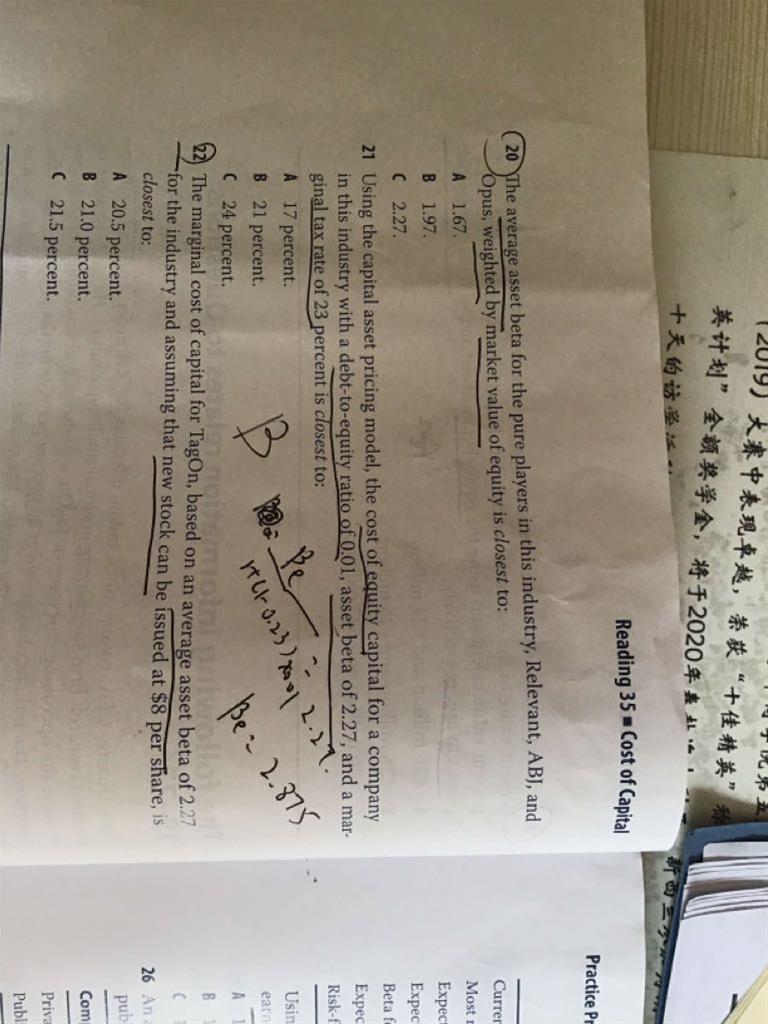 Reading 35 ■ Cost of Capital
20 The average asset beta for the pure players in this industry, Relevant, ABJ, and
Opus, weighted by market value of equity is closest to:
A 1.67.
B 1.97.
C 2.27.
21 Using the capital asset pricing model, the cost of equity capital for a company
in this industry with a debt-to-equity ratio of 0.01, asset beta of 2.27, and a mar-
ginal tax rate of 23 percent is closest to:
A 17 percent.
B 21 percent.
C 24 percent.
22 The marginal cost of capital for TagOn, based on an average asset beta of 2.27
for the industry and assuming that new stock can be issued at $8 per share, is
closest to:
A 20.5 percent.
B 21.0 percent.
C 21.5 percent.
β
βe
Practice Pr
Curren
Most r
Expect
Expec
Beta f
Expec
Risk-f
Usin
earn
A 1
B 1
C 1
26 An
pub
Com
Priva
Publi
(2019) 大赛中表现卓越，荣获“十佳精英”称
英计划”全额奖学金，将于2020年
十天的访学活